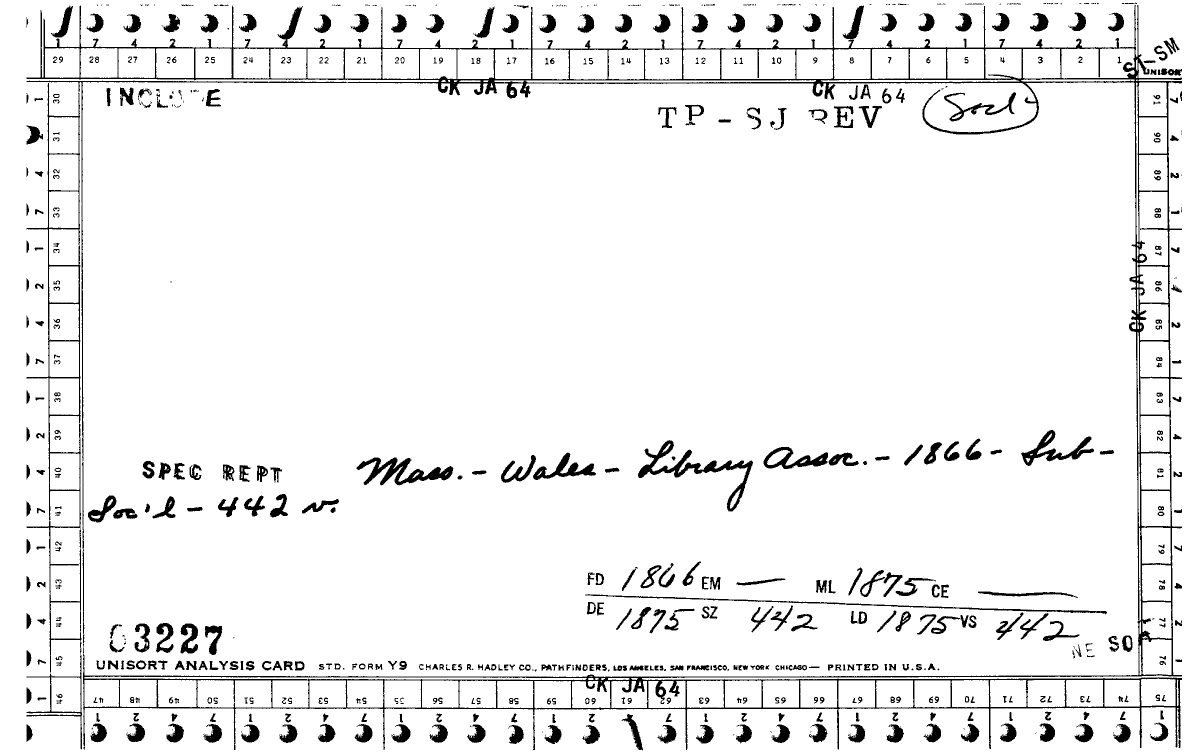 1 7 4 2 1 7 4 2 1 7 4 2 1 7 4 2 1 7 4 2 1 7 4 2 1 7 4 2 1
29 28 27 26 25 24 23 22 21 20 19 18 17 16 15 14 13 12 11 10 9 8 7 6 5 4 3 2 1
ST-SM
UNISORT
INCLUDE
CK JA 64
CK JA 64
TP - SJ REV
Soc'l
30 31 32 33 34 35 36 37 38 39 40 41 42 43 44 45 46
91 90 89 88 87 86 85 84 83 82 81 80 79 78 77 76 75
CK JA 64
SPEC REPT Mass. - Wales - Library Assoc. - 1866 - Sub-
Soc'l - 442 v.
FD 1866 EM — ML 1875 CE —
DE 1875 SZ 442 LD 1875 VS 442
03227
NE SO
UNISORT ANALYSIS CARD STD. FORM Y9 CHARLES R. HADLEY CO., PATHFINDERS, LOS ANGELES, SAN FRANCISCO, NEW YORK CHICAGO — PRINTED IN U.S.A.
CK JA 64
47 48 49 50 51 52 53 54 55 56 57 58 59 60 61 62 63 64 65 66 67 68 69 70 71 72 73 74
1 2 4 7 1 2 4 7 1 2 4 7 1 2 4 7 1 2 4 7 1 2 4 7 1 2 4 7 1